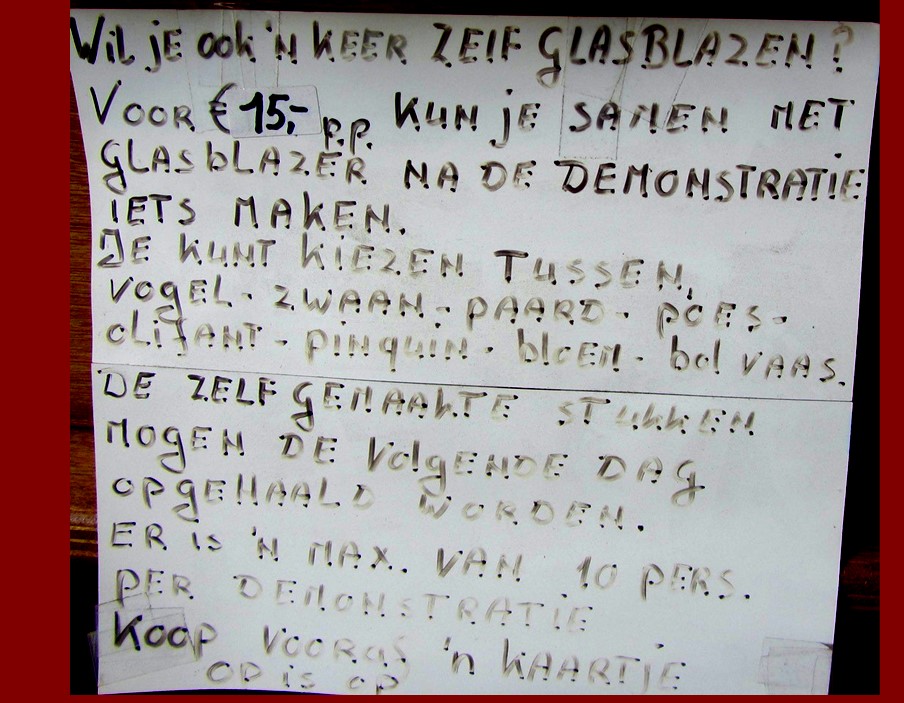 Wil je ook 'n keer ZELF GLASBLAZEN?
VOOR € 15,- p.p. KUN je SAMEN MET
GLASBLAZER NA DE DEMONSTRATIE
IETS MAKEN.
JE KUNT KIEZEN TUSSEN,
VOGEL - ZWAAN - PAARD - POES -
OLIFANT - PINQUIN - bloEM - bol VAAS.
DE ZELF GEMAAKTE STUKKEN
MOGEN DE VOlgENDE DAG
OPGEHAALD WORDEN.
ER is 'N MAX. VAN 10 PERS.
PER DEMONSTRATIE
KOOP VOORAf 'n KAARTJE
OP is OP